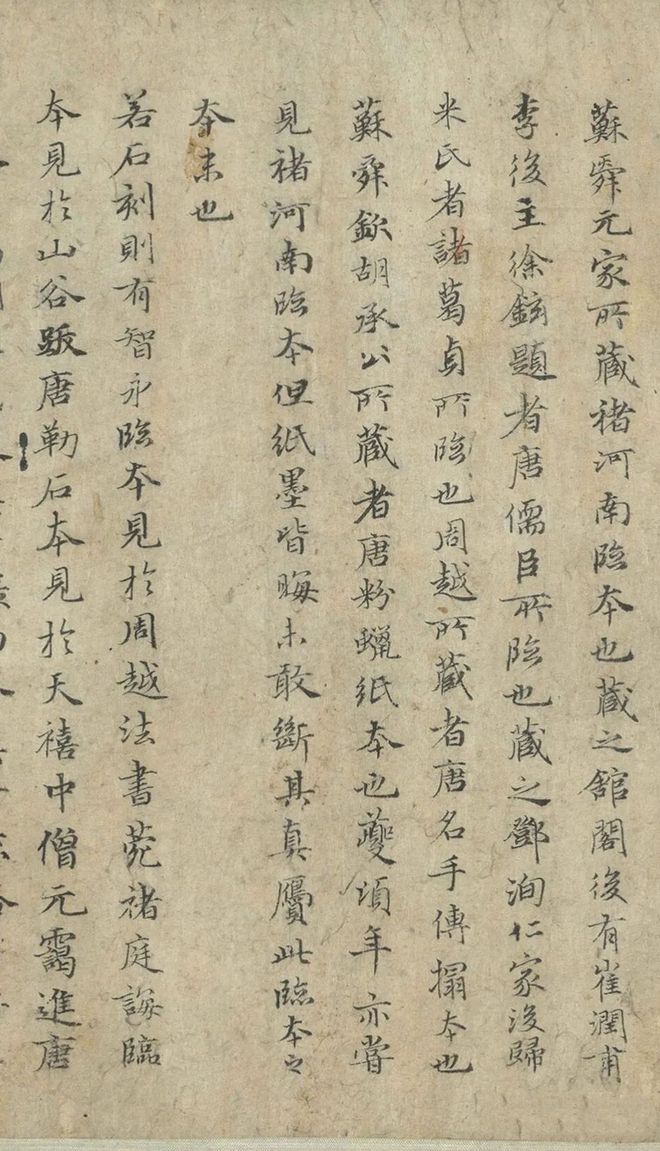 蘇舜元家所藏褚河南臨本也藏之舘閣後有崔潤甫
李後主徐鉉題者唐儒臣所臨也藏之鄧洵仁家後歸
米氏者諸葛貞所臨也周越所藏者唐名手傳搨本也
蘇舜欽胡承公所藏者唐粉蠟紙本也夔頃年亦嘗
見褚河南臨本但紙墨皆晦未敢斷其真贗此臨本之
本末也
若石刻則有智永臨本見於周越法書苑褚庭誨臨
本見於山谷跋唐勒石本見於天禧中僧元靄進唐